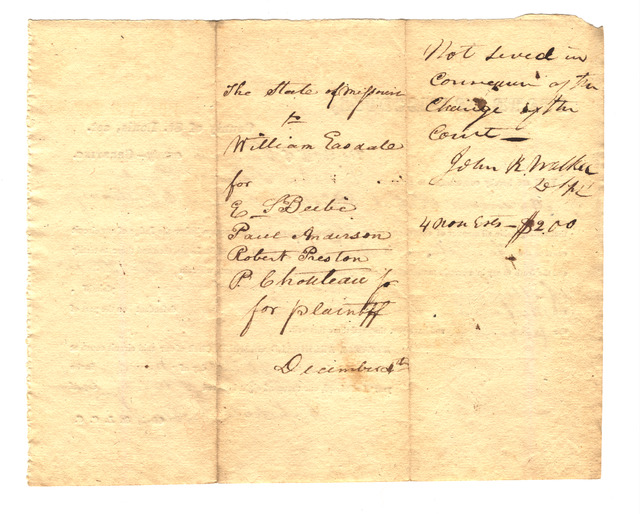 The State of Missouri
to
William Easdale
for
E S Beebe
Paul Anderson
Robert Preston
P Chouteau Jr
for plaintff
December 4th
Not served in
of the
Change of the
Court
John K. Walker
4 non Ests - $2.00